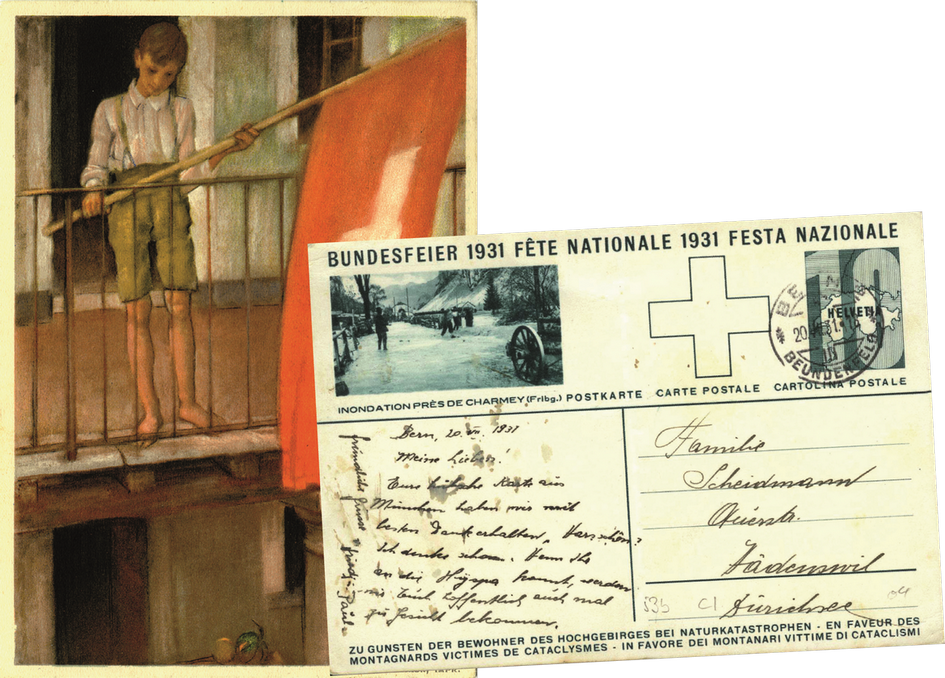 BUNDESFEIER 1931 FÊTE NATIONALE 1931 FESTA NAZIONALE
10
HELVETIA
BERN
20. VII. 31. – 14
10
BEUNDENFELD
INONDATION PRÈS DE CHARMEY (Frlbg.) POSTKARTE CARTE POSTALE CARTOLINA POSTALE
Bern, 20 VII. 1931
Meine Lieben!
Eure hübsche Karte aus
München haben wir mit
bestem Dank erhalten. War schön?
Ich denke schon. Wenn Ihr
an die Hyspa kommt, werden
wir Euch hoffentlich auch mal
zu Gesicht bekommen.
Familie
Scheidmann
Wädenswil
Zürichsee
53b C1 04
ZU GUNSTEN DER BEWOHNER DES HOCHGEBIRGES BEI NATURKATASTROPHEN - EN FAVEUR DES
MONTAGNARDS VICTIMES DE CATACLYSMES - IN FAVORE DEI MONTANARI VITTIME DI CATACLISMI